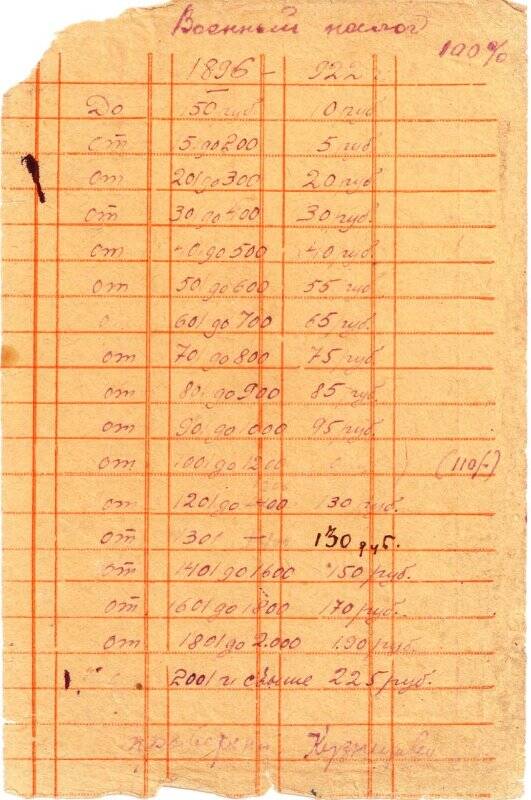 Военный налог
100%
1896 – 922
До 150 руб 10 руб
от 151 до 200 5 руб
от 201 до 300 20 руб
от 30 до 400 30 руб.
от 401 до 500 40 руб.
от 50 до 600 55 руб.
601 до 700 65 руб.
от 701 до 800 75 руб.
от 801 до 900 85 руб.
от 901 до 1000 95 руб.
от 1001 до 1200 (110/-)
от 1201 до 130 руб.
от 1301 130 руб.
от 1401 до 1600 150 руб.
от 1601 до 1800 170 руб.
от 1801 до 2.000 190 руб.
2001 и свыше 225 руб.